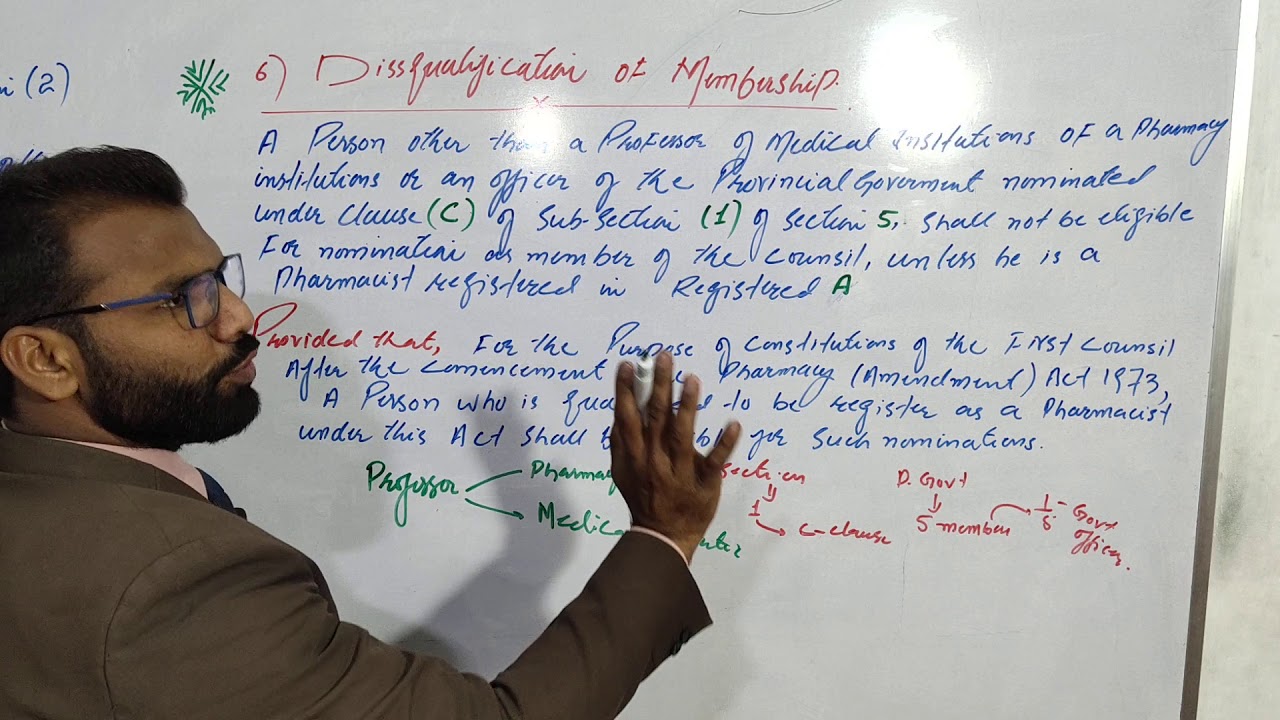 (2)
6) Dissqualification of Membership.
A Person other than a Professor of Medical Institutions of a Pharmacy
institutions or an officer of the Provincial Goverment nominated
under Clause (C) of Sub-Section (1) of Section 5, shall not be eligible
For nomination as member of the Counsil, unless he is a
Pharmacist registered in Registered A
Provided that, For the Purpose of Constitutions of the First Counsil
After the Commencement Pharmacy (Amendment) Act 1973,
A Person who is to be register as a Pharmacist
under this Act shall for such nominations.
Professor
Pharma
Medica
section
1
C-clause
P. Govt
5 member
1/5 - Govt
officer.